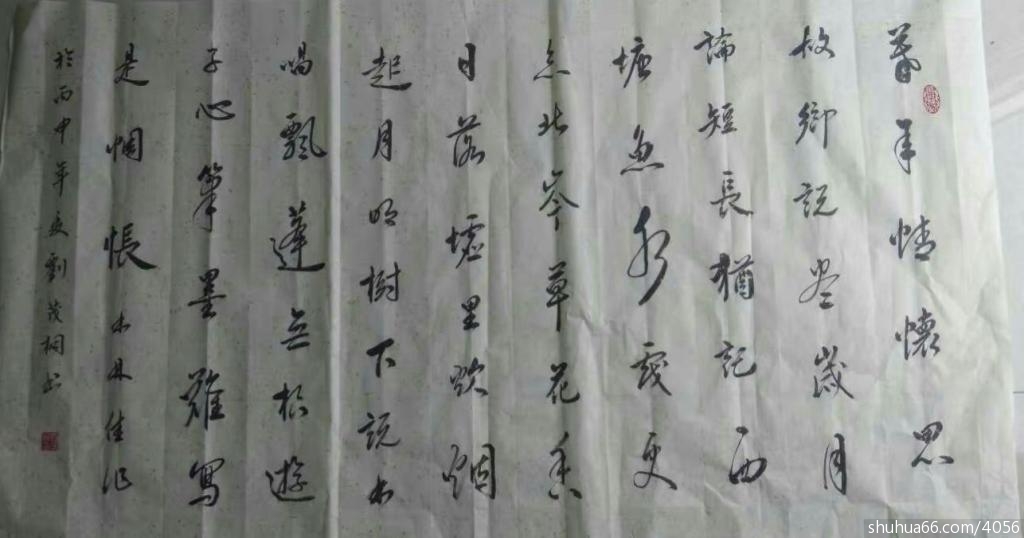 暮年情懷思
故鄉説盡歲月
論短長猶記西
塘魚水更
念北岑草花香
日落墟里炊烟
起月明樹下説书
唱飄蓬無根遊
子心筆墨難寫
是惆悵木林佳作
於丙申年夏劉茂桐书
shuhua66.com/4056